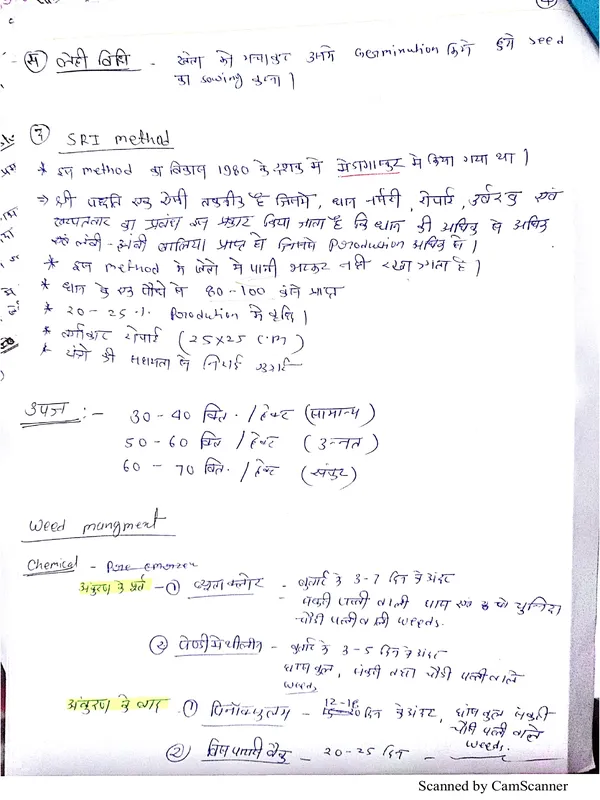 4
लेही विधि - खेत को मचाकर उसमे Germination किये हुये seed
का sowing करना |
SRI method
* इस method का विकास 1980 के दशक मे मेडागास्कर मे किया गया था |
⇒ श्री पद्धति एक ऐसी तकनीक है जिसमे, धान नर्सरी, रोपाई, उर्वरक एवं
खरपतवार का प्रबंध इस प्रकार किया जाता है कि धान की अधिक से अधिक
लंबी - लंबी बालिया प्राप्त हो जिससे Production अधिक हो |
* इस method मे खेतो मे पानी भरकर नही रखा जाता है |
* धान के एक पौधे से 80-100 कंसे प्राप्त
* 20-25 % Production मे वृद्धि |
* वर्गाकार रोपाई (25x25 c.m)
* यंत्रो की सहायता से निंदाई गुड़ाई
उपज :- 30-40 क्विं. / हेक्ट (सामान्य)
50-60 क्विं / हेक्ट (उन्नत)
60 - 70 क्विं. / हेक्ट (संकर)
Weed mangment
Chemical - Pre emergence
अंकुरण के पूर्व - ① ब्यूटाक्लोर - बुवाई के 3-7 दिन के अंदर
सकरी पत्ती वाली घास एवं
चौड़ी पत्ती वाली weeds.
② पेण्डीमेथीलीन - बुवाई के 3-5 दिन के अंदर
घास कुल, सकरी तथा चौड़ी पत्ती वाले
weeds
अंकुरण के बाद ① 12-18 दिन के अंदर, घास कुल सकरी
चौड़ी पत्ती वाले
② 20-25 दिन - weeds.
Scanned by CamScanner